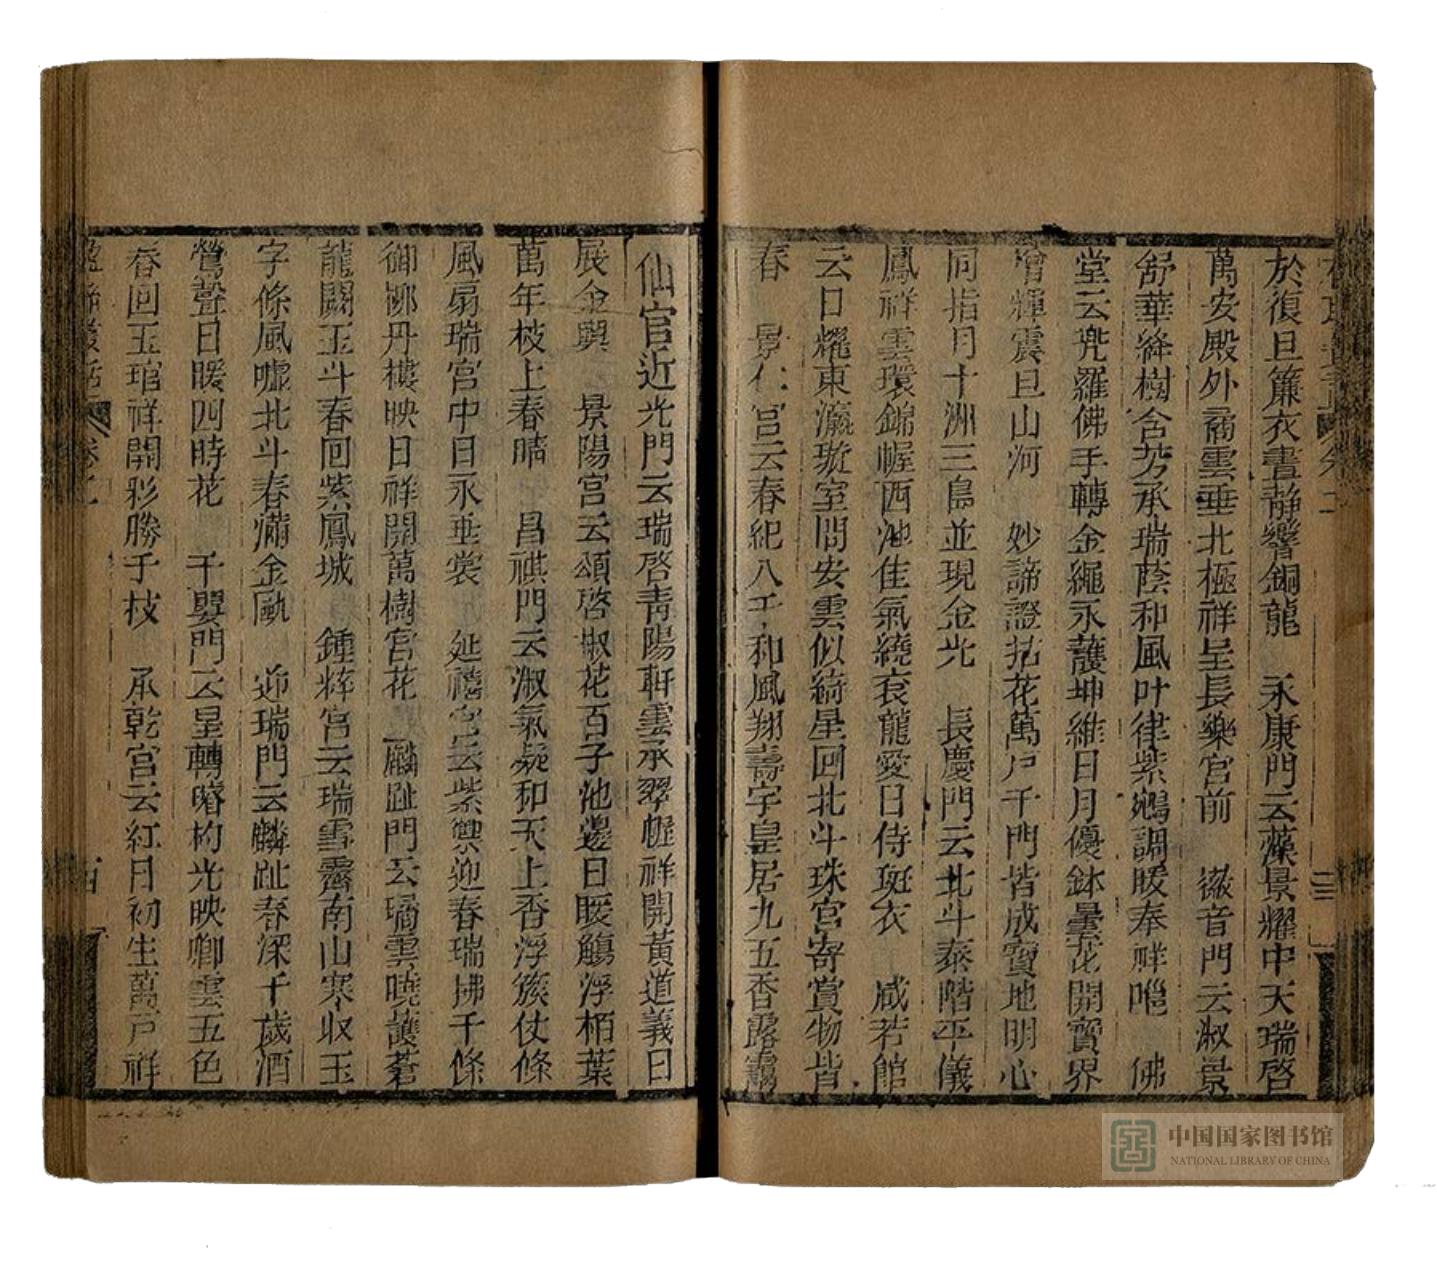 於復旦簾衣晝靜響銅龍　永康門云藻景耀中天瑞啓
萬安殿外矞雲垂北極祥呈長樂宮前　徽音門云淑景
舒華絳樹含芳承瑞蔭和風叶律紫鵷調暖奉祥暉　佛
堂云兜羅佛手轉金繩永護坤維日月優鉢曇花開寶界
增輝震旦山河　妙諦證拈花萬戶千門皆成寶地明心
同指月十洲三島並現金光　長慶門云北斗泰階平儀
鳳祥雲環錦幄西池佳氣繞袞龍愛日侍斑衣　咸若館
云日耀東瀛璇室問安雲似綺星回北斗珠宮寄賞物皆
春　景仁宮云春紀八千和風翔壽宇皇居九五香露靄
仙官近光門云瑞啓青陽軒雲承翠幄祥開黃道義日
展金輿　景陽宮云頌啓椒花百子池邊日暖觴浮栢葉
萬年枝上春晴　昌祺門云淑氣凝和天上香浮簇仗條
風扇瑞宮中日永垂裳　延禧宮云紫禁迎春瑞拂千條
御柳丹樓映日祥開萬樹宮花　麟趾門云矞雲曉護蒼
龍闕玉斗春回紫鳳城　鍾粹宮云瑞雪霽南山寒收玉
字條風噓北斗春滿金甌　迎瑞門云麟趾春深千歲酒
鶯聲日暖四時花　千嬰門云星轉璿杓光映卿雲五色
春回玉琯祥開彩勝千枝　承乾宮云紅日初生萬戶祥
楹聯叢話　卷二
中国国家图书馆
NATIONAL LIBRARY OF CHINA